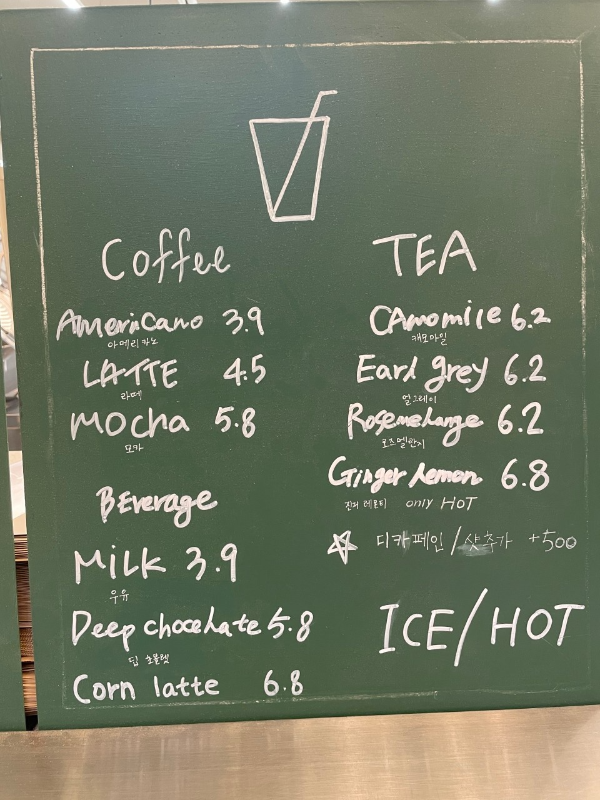 Coffee
Americano 3.9
아메리카노
LATTE 4.5
라떼
Mocha 5.8
모카
BEverage
MiLK 3.9
우유
Deep chocelate 5.8
딥 초콜렛
Corn latte 6.8
TEA
CAmomile 6.2
캐모마일
Earl grey 6.2
얼그레이
Rosemelange 6.2
로즈멜란지
Ginger lemon 6.8
진저 레몬티 only HOT
☆ 디카페인/샷추가 +500
ICE/HOT